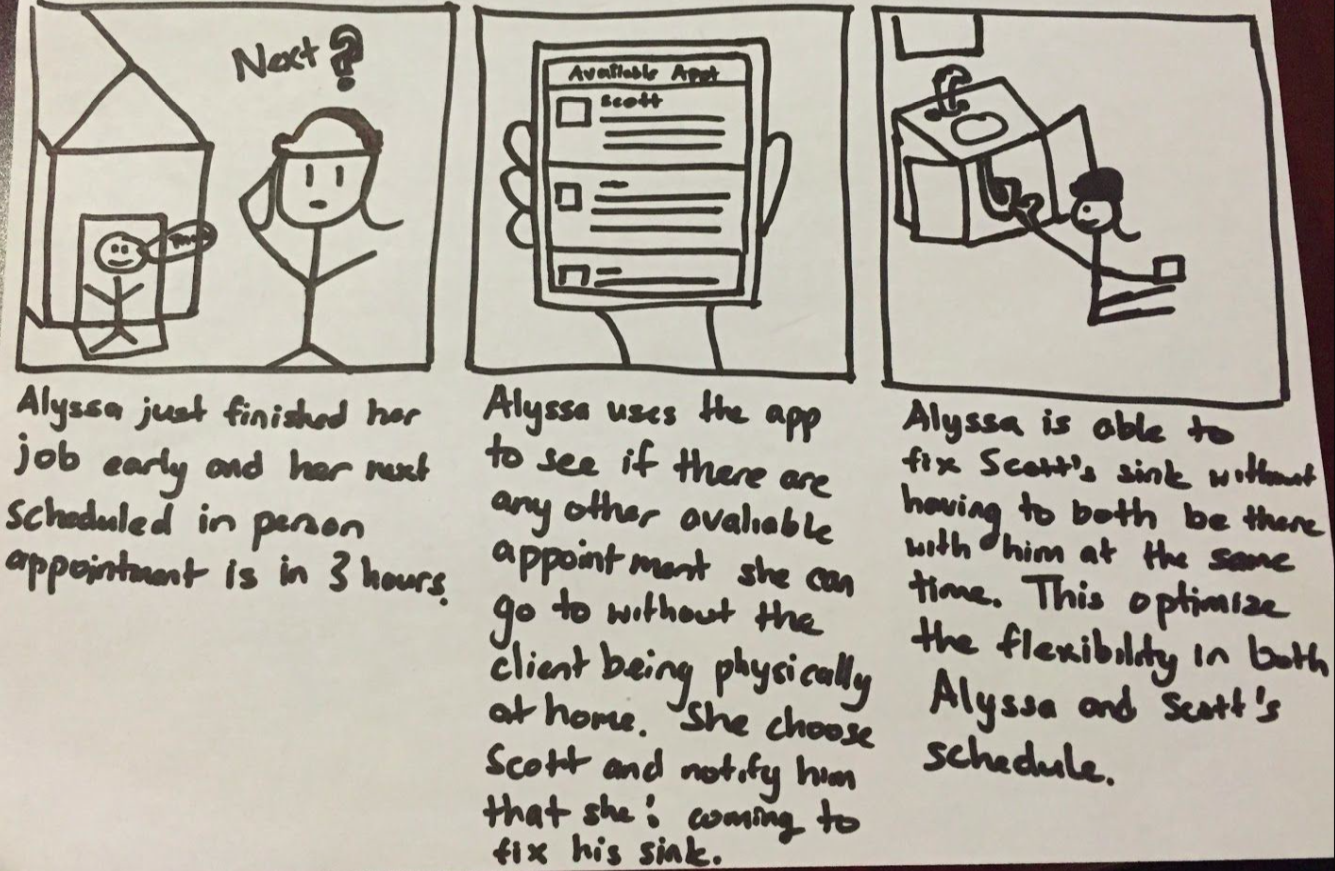 Next?
Available Appt
Scott
Alyssa just finished her
job early and her next
scheduled in person
appointment is in 3 hours.
Alyssa uses the app
to see if there are
any other avaliable
appointment she can
go to without the
client being physically
at home. She choose
Scott and notify him
that she's coming to
fix his sink.
Alyssa is able to
fix Scott's sink without
having to both be there
with him at the same
time. This optimize
the flexibility in both
Alyssa and Scott's
schedule.